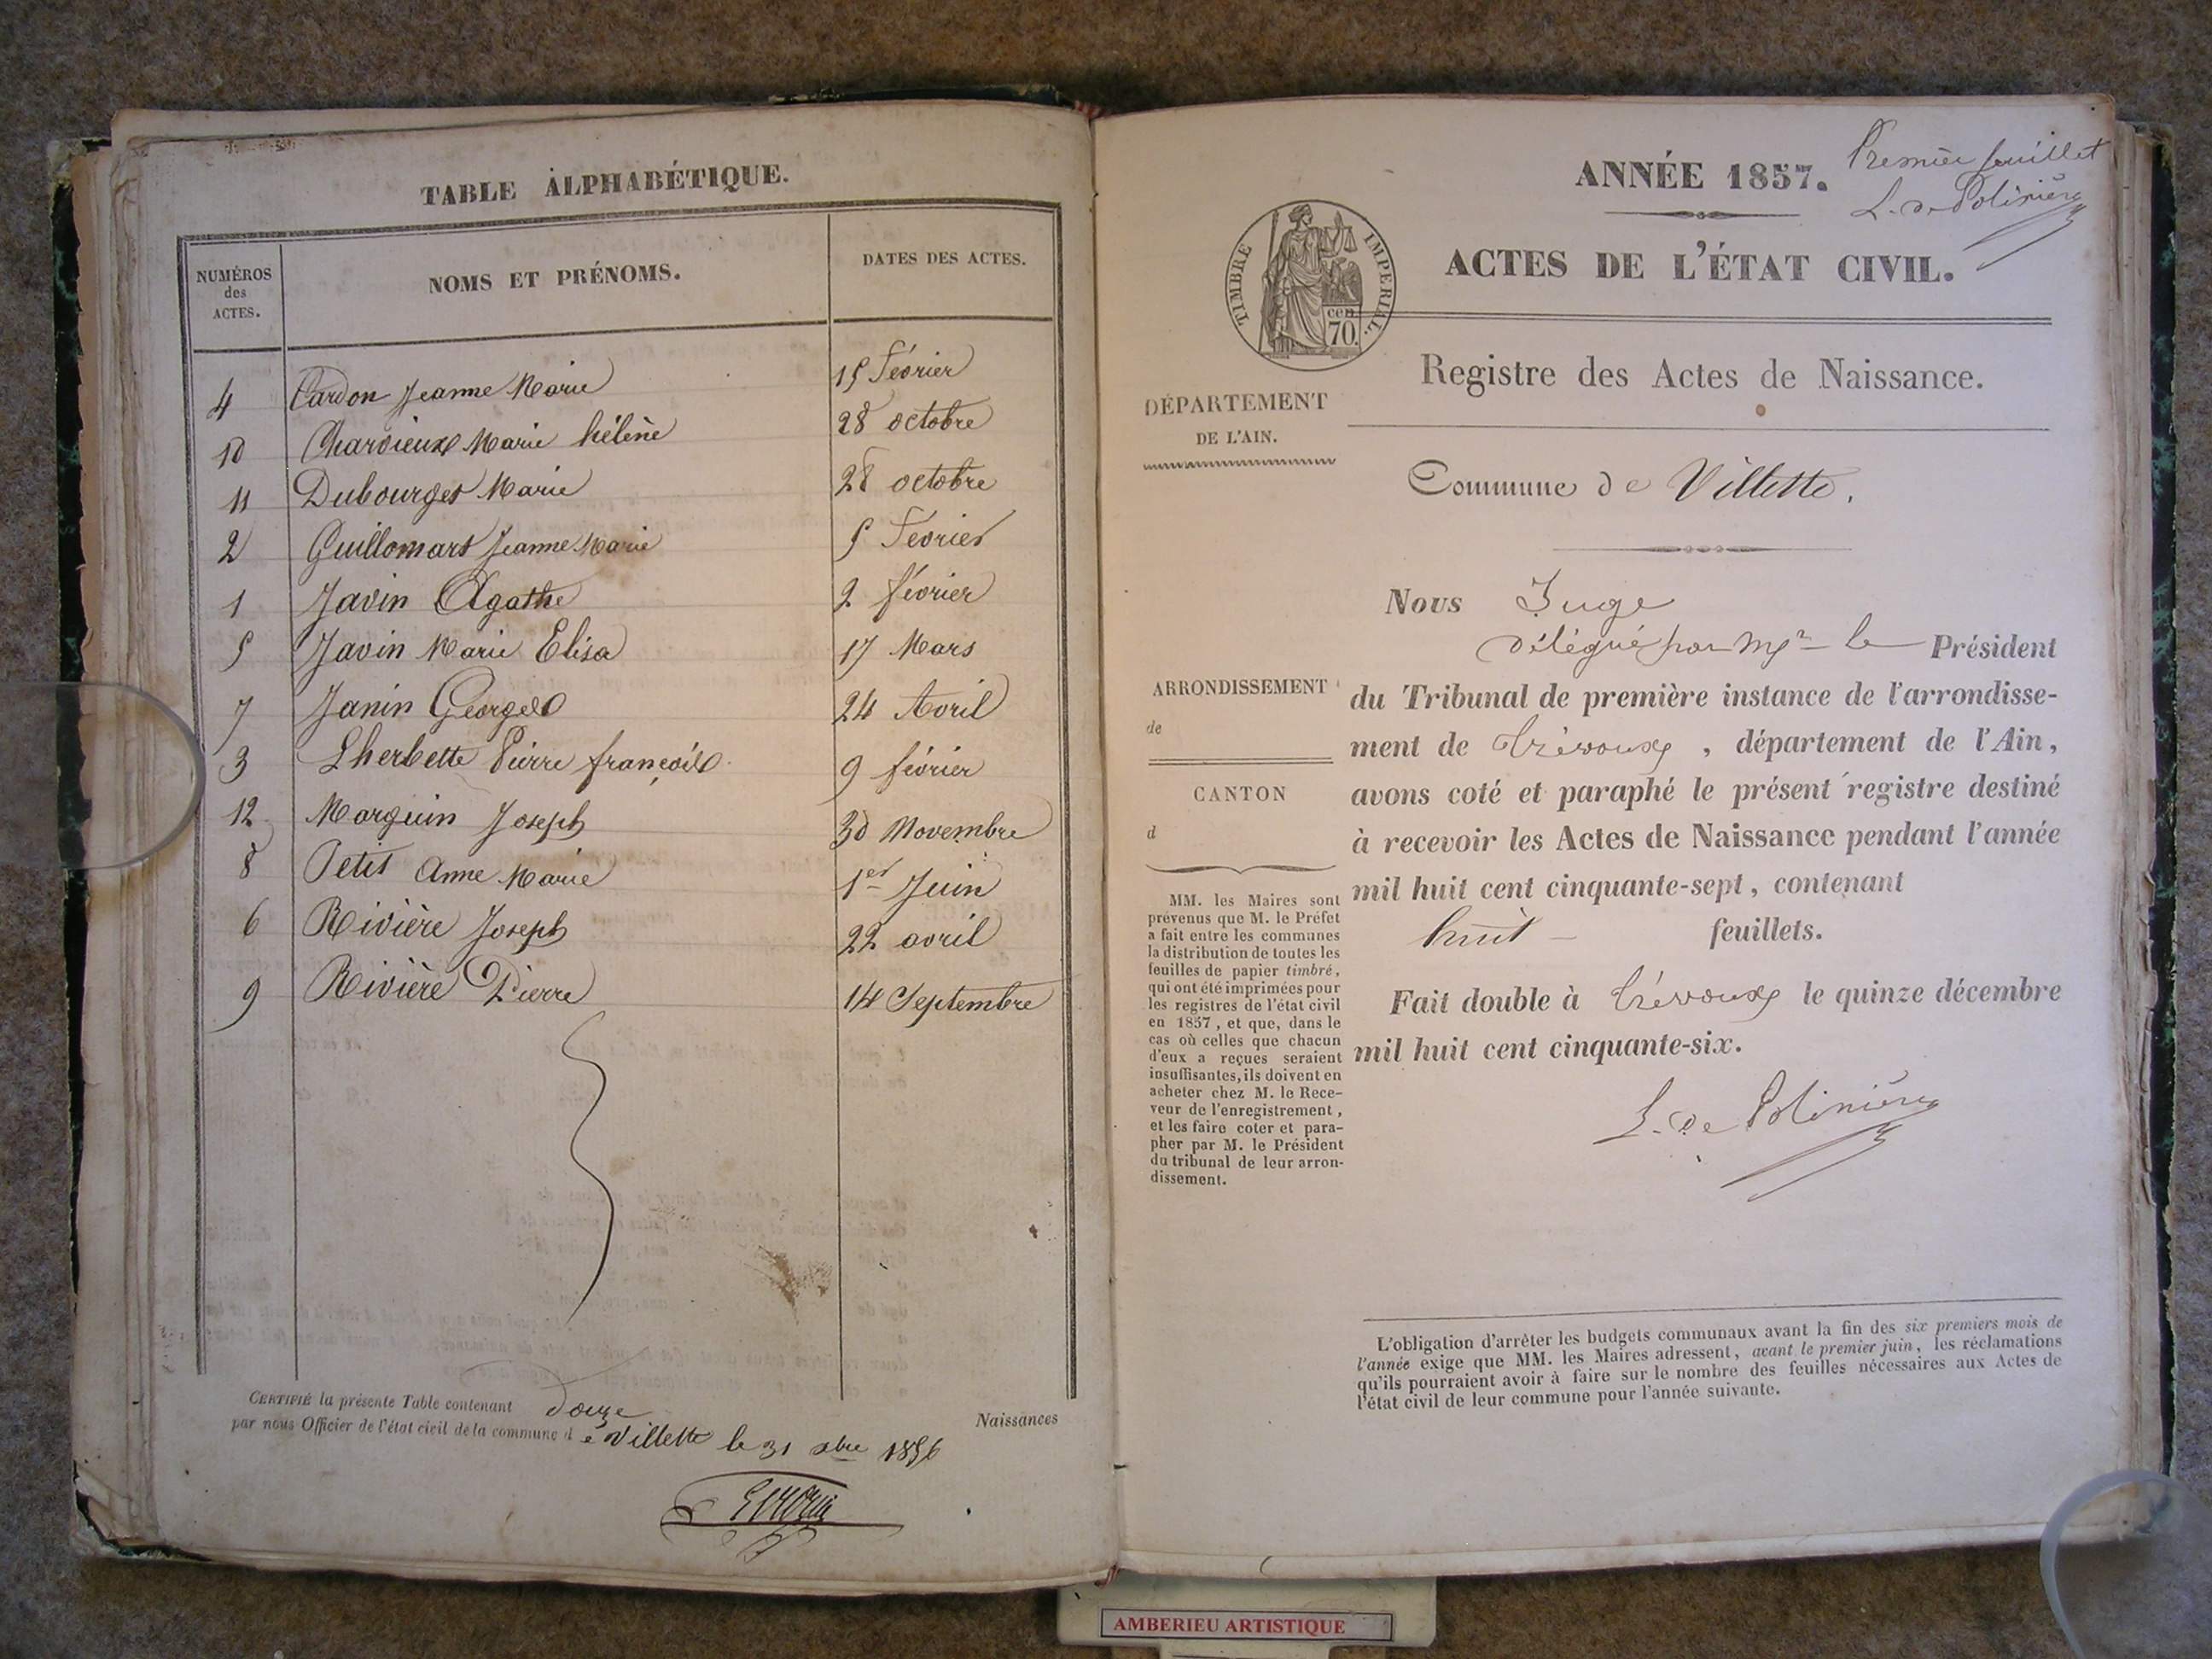 TABLE ALPHABÉTIQUE.
NUMÉROS des ACTES. NOMS ET PRÉNOMS. DATES DES ACTES.
4 Cardon Jeanne Marie 15 Février
10 Charvieux Marie hélène 28 octobre
11 Dubourget Marie 28 octobre
2 Guillomart Jeanne Marie 5 Février
1 Javin Agathe 2 février
5 Javin Marie Elisa 17 Mars
7 Janin Georges 24 Avril
3 Lherbette Pierre françois 9 février
12 Marguin Joseph 30 Novembre
8 Petit Anne Marie 1er Juin
6 Rivière Joseph 22 avril
9 Rivière Pierre 14 Septembre
CERTIFIÉ la présente Table contenant douze Naissances
par nous Officier de l'état civil de la commune de Villette le 31 xbre 1856
Premier feuillet
L. de Polinière
ANNÉE 1857.
ACTES DE L'ÉTAT CIVIL.
TIMBRE IMPERIAL.
cen
70.
Registre des Actes de Naissance.
DÉPARTEMENT
DE L'AIN.
Commune de Villette.
Nous Juge
délégué par Mr le Président
du Tribunal de première instance de l'arrondisse-
ment de Trévoux, département de l'Ain,
avons coté et paraphé le présent registre destiné
à recevoir les Actes de Naissance pendant l'année
mil huit cent cinquante-sept, contenant
huit feuillets.
Fait double à Trévoux le quinze décembre
mil huit cent cinquante-six.
L. de Polinière
ARRONDISSEMENT
de
CANTON
d
MM. les Maires sont
prévenus que M. le Préfet
a fait entre les communes
la distribution de toutes les
feuilles de papier timbré,
qui ont été imprimées pour
les registres de l'état civil
en 1857, et que, dans le
cas où celles que chacun
d'eux a reçues seraient
insuffisantes, ils doivent en
acheter chez M. le Rece-
veur de l'enregistrement,
et les faire coter et para-
pher par M. le Président
du tribunal de leur arron-
dissement.
L'obligation d'arrêter les budgets communaux avant la fin des six premiers mois de
l'année exige que MM. les Maires adressent, avant le premier juin, les réclamations
qu'ils pourraient avoir à faire sur le nombre des feuilles nécessaires aux Actes de
l'état civil de leur commune pour l'année suivante.
AMBERIEU ARTISTIQUE